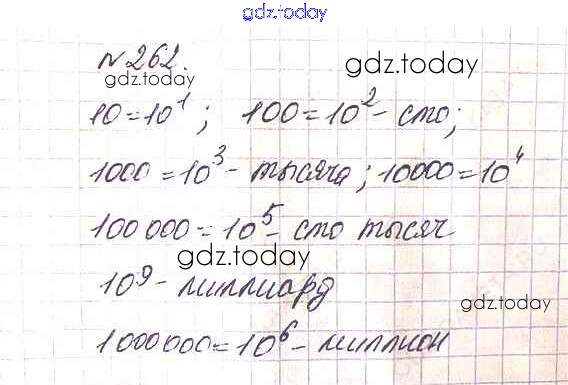 gdz.today
№262.
gdz.today
gdz.today
10=10¹; 100=10²- сто;
1000=10³- тысяча; 10000=10⁴
100 000=10⁵- сто тысяч
gdz.today
10⁹- миллиард
gdz.today
1000000=10⁶- миллион